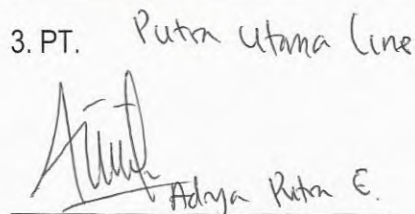 3. PT. Putra Utama Line
Adrya Putra E.